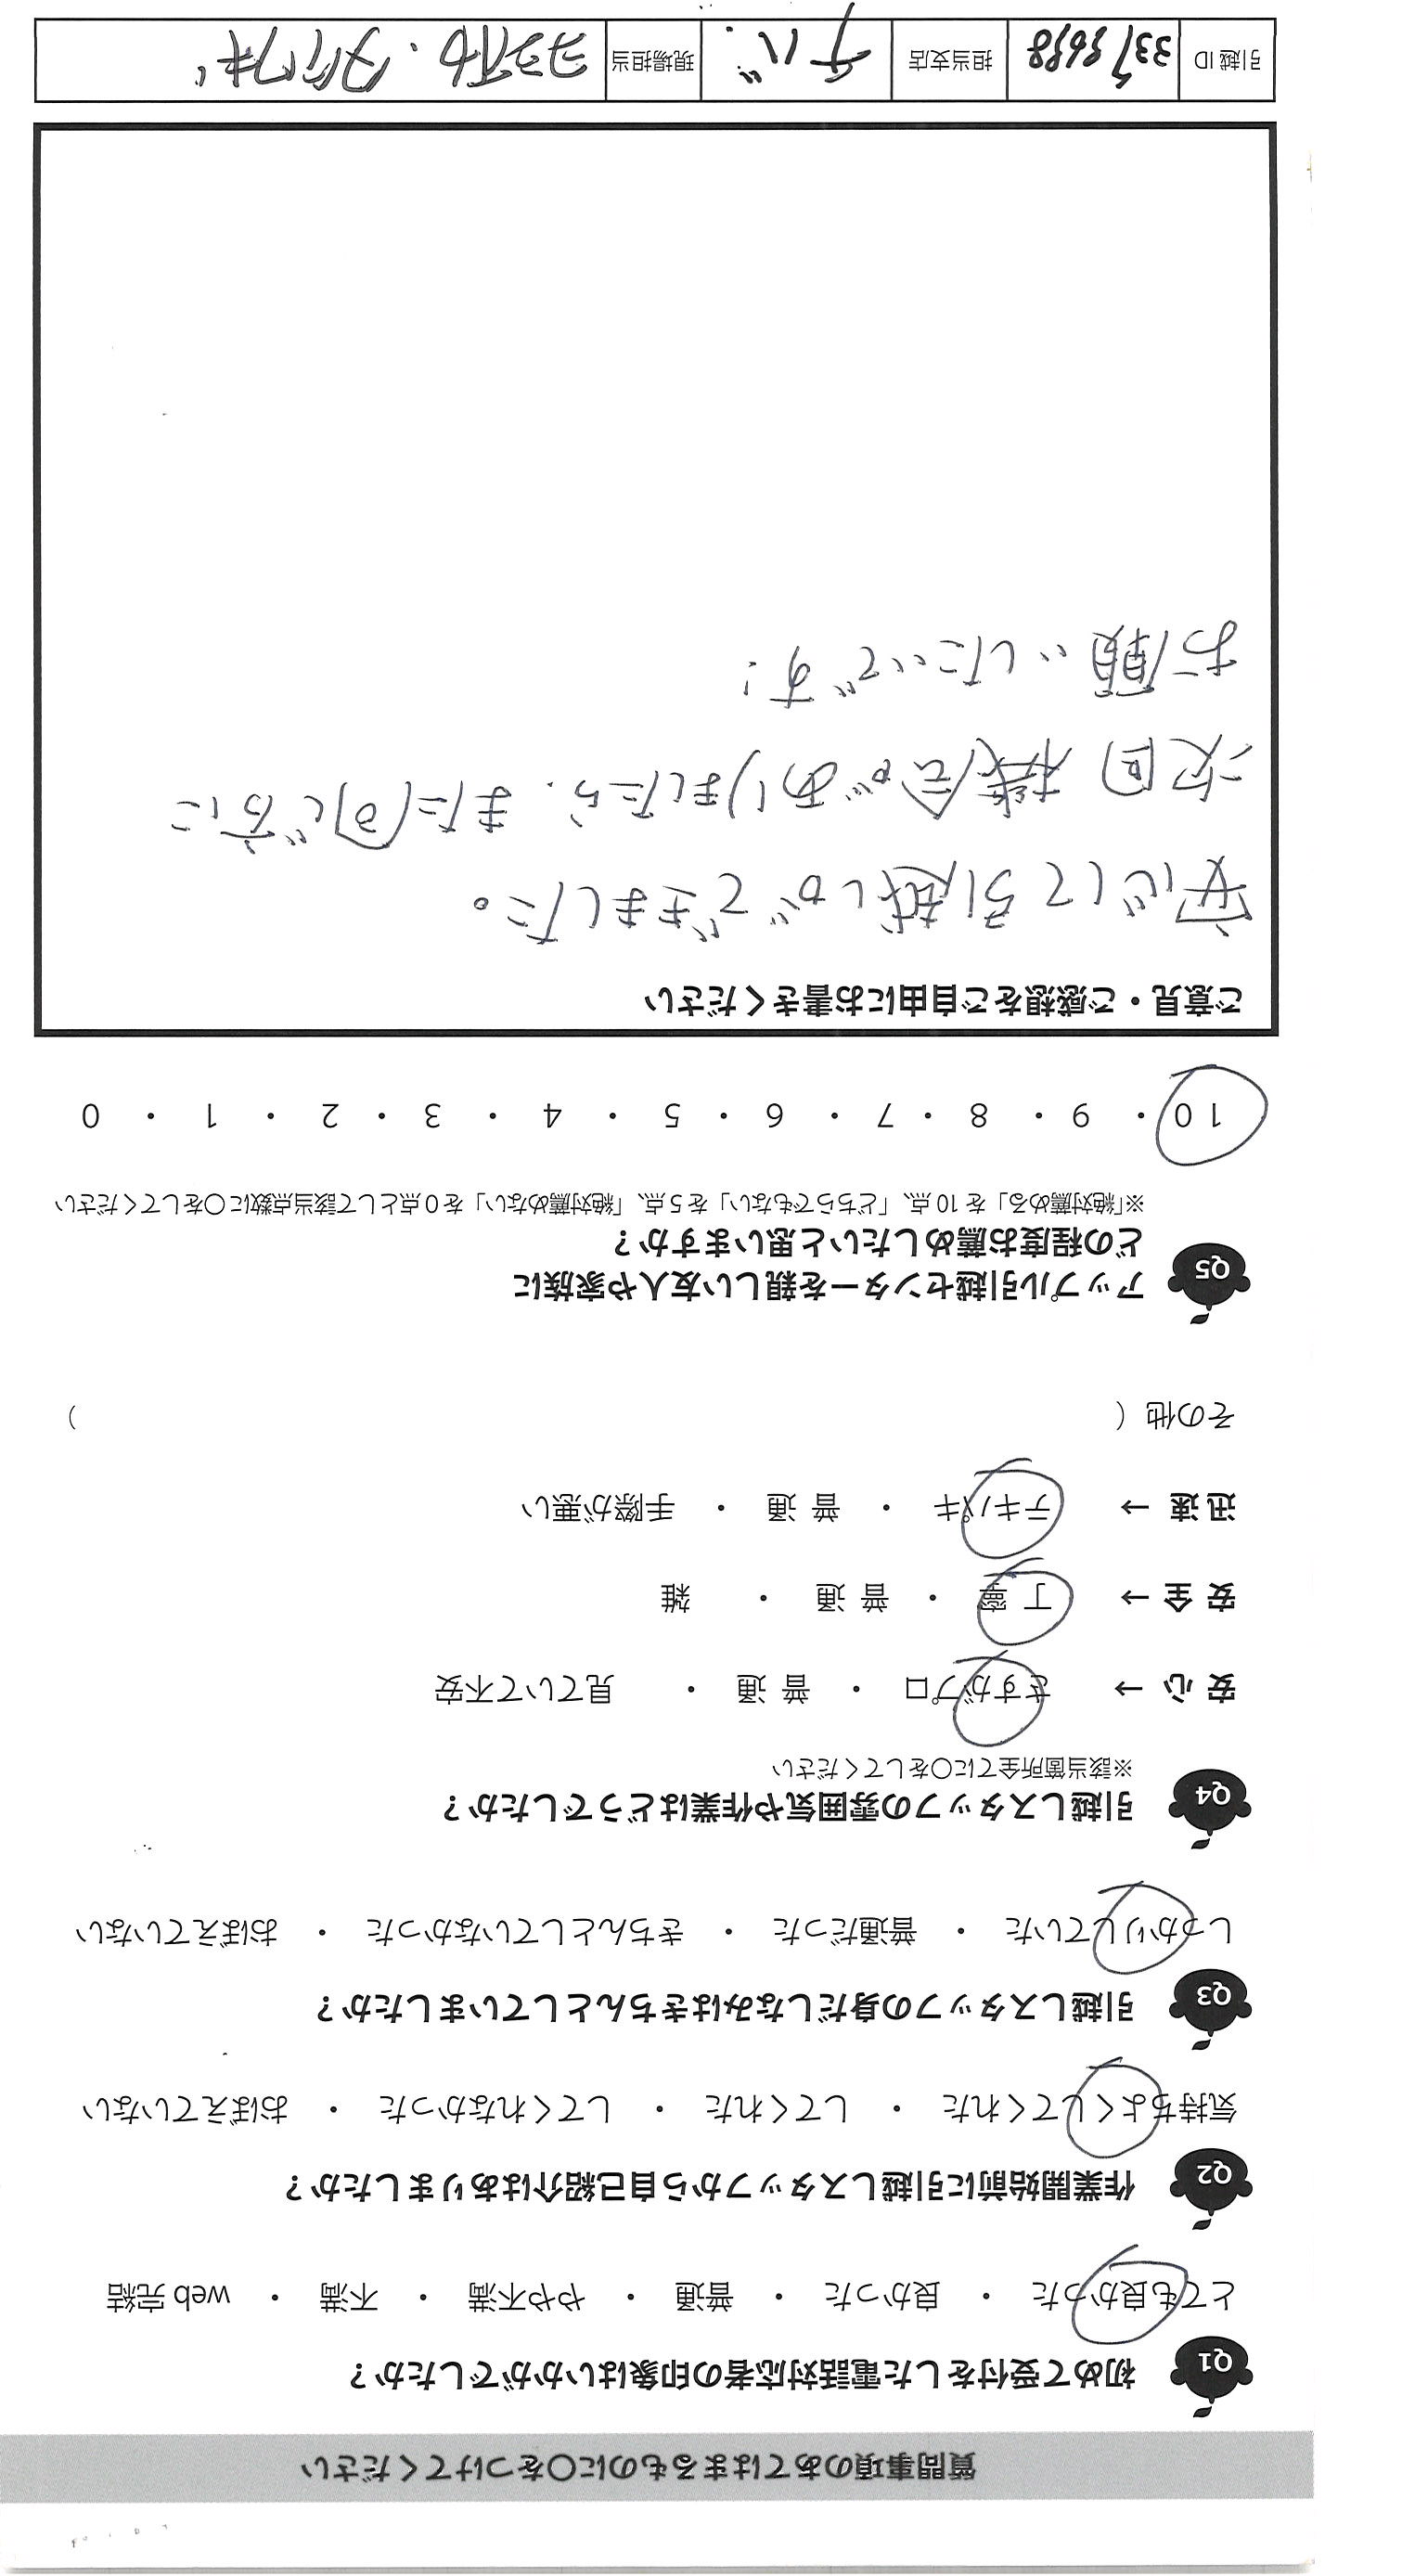 質問事項のあてはまるものに○をつけてください
Q1 初めて受付をした電話対応者の印象はいかがでしたか？
とても良かった ・ 良かった ・ 普通 ・ やや不満 ・ 不満 ・ web 完結
Q2 作業開始前に引越しスタッフから自己紹介はありましたか？
気持ちよくしてくれた ・ してくれた ・ してくれなかった ・ おぼえていない
Q3 引越しスタッフの身だしなみはきちんとしていましたか？
しっかりしていた ・ 普通だった ・ きちんとしていなかった ・ おぼえていない
Q4 引越しスタッフの雰囲気や作業はどうでしたか？
※該当箇所全てに○をしてください
安 心 → さすがプロ ・ 普 通 ・ 見ていて不安
安 全 → 丁 寧 ・ 普 通 ・ 雑
迅 速 → テキパキ ・ 普 通 ・ 手際が悪い
その他（ ）
Q5 アップル引越センターを親しい友人や家族に
どの程度お薦めしたいと思いますか？
※「絶対薦める」を 10 点、「どちらでもない」を 5 点、「絶対薦めない」を 0 点として該当点数に○をしてください
10 ・ 9 ・ 8 ・ 7 ・ 6 ・ 5 ・ 4 ・ 3 ・ 2 ・ 1 ・ 0
ご意見・ご感想をご自由にお書きください
安心して引越しができました。
次回機会がありましたら、また同じ方に
お願いしたいです！
引越 ID 担当支店 チバ 現場担当